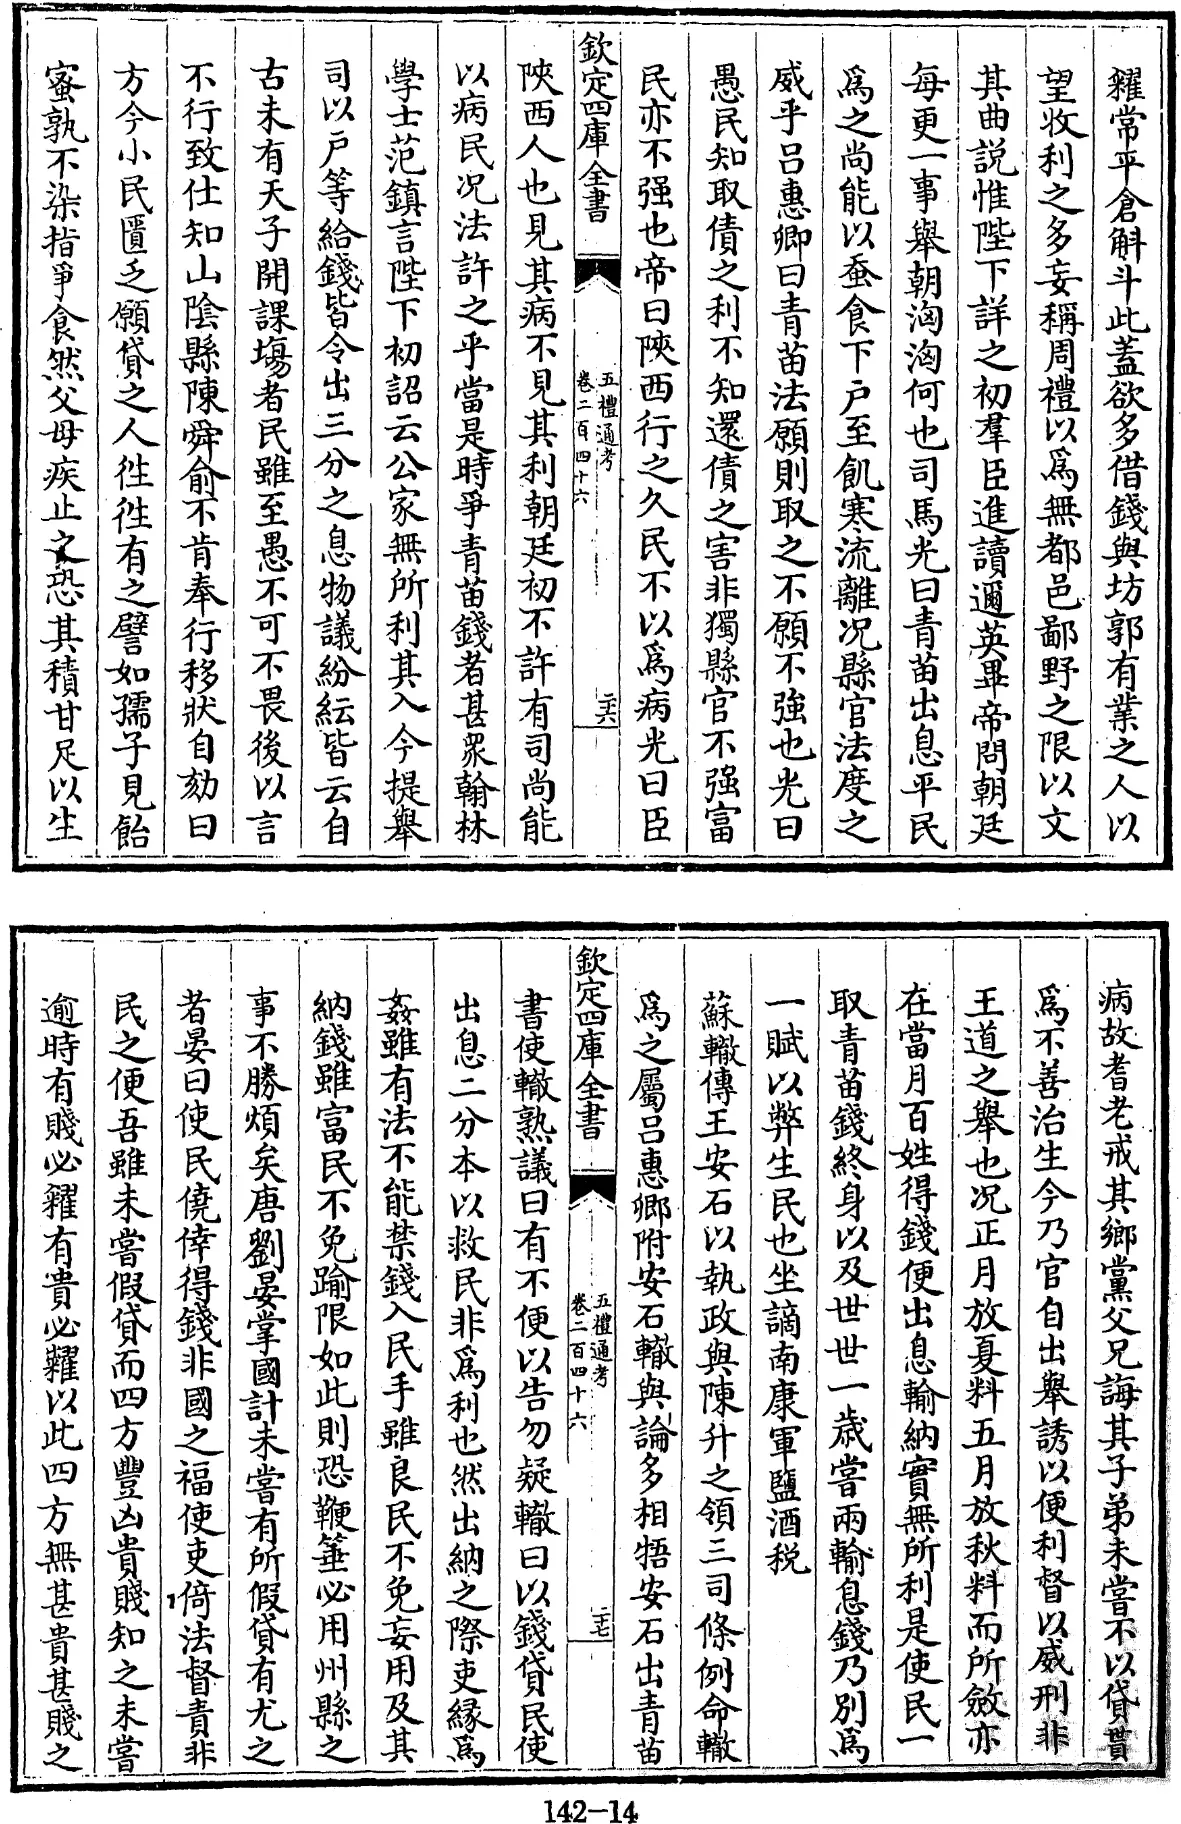 糴常平倉斛斗此蓋欲多借錢與坊郭有業之人以
望收利之多妄稱周禮以爲無都邑鄙野之限以文
其曲説惟陛下詳之初羣臣進讀邇英畢帝問朝廷
每更一事舉朝洶洶何也司馬光曰青苗出息平民
爲之尚能以蚕食下户至飢寒流離况縣官法度之
威乎吕惠卿曰青苗法願則取之不願不強也光曰
愚民知取債之利不知還債之害非獨縣官不强富
民亦不强也帝曰陝西行之久民不以爲病光曰臣
欽定四庫全書
五禮通考
卷二百四十六
二六
陝西人也見其病不見其利朝廷初不許有司尚能
以病民况法許之乎當是時爭青苗錢者甚衆翰林
學士范鎮言陛下初詔云公家無所利其入今提舉
司以户等給錢皆令出三分之息物議紛紜皆云自
古未有天子開課塲者民雖至愚不可不畏後以言
不行致仕知山陰縣陳舜俞不肯奉行移狀自劾曰
方今小民匱乏願貸之人徃徃有之譬如孺子見飴
蜜孰不染指爭食然父母疾止之恐其積甘足以生
病故耆老戒其鄉黨父兄誨其子弟未嘗不以貸貰
爲不善治生今乃官自出舉誘以便利督以威刑非
王道之舉也况正月放夏料五月放秋料而所斂亦
在當月百姓得錢便出息輸納實無所利是使民一
取青苗錢終身以及世世一歲嘗兩輸息錢乃別爲
一賦以弊生民也坐謫南康軍鹽酒税
蘇轍傳王安石以執政與陳升之領三司條例命轍
爲之屬吕惠卿附安石轍與論多相牾安石出青苗
欽定四庫全書
五禮通考
卷二百四十六
二七
書使轍熟議曰有不便以告勿疑轍曰以錢貸民使
出息二分本以救民非爲利也然出納之際吏緣爲
姦雖有法不能禁錢入民手雖良民不免妄用及其
納錢雖富民不免踰限如此則恐鞭箠必用州縣之
事不勝煩矣唐劉晏掌國計未嘗有所假貸有尤之
者晏曰使民僥倖得錢非國之福使吏倚法督責非
民之便吾雖未嘗假貸而四方豐凶貴賤知之未嘗
逾時有賤必糴有貴必糶以此四方無甚貴甚賤之
142-14